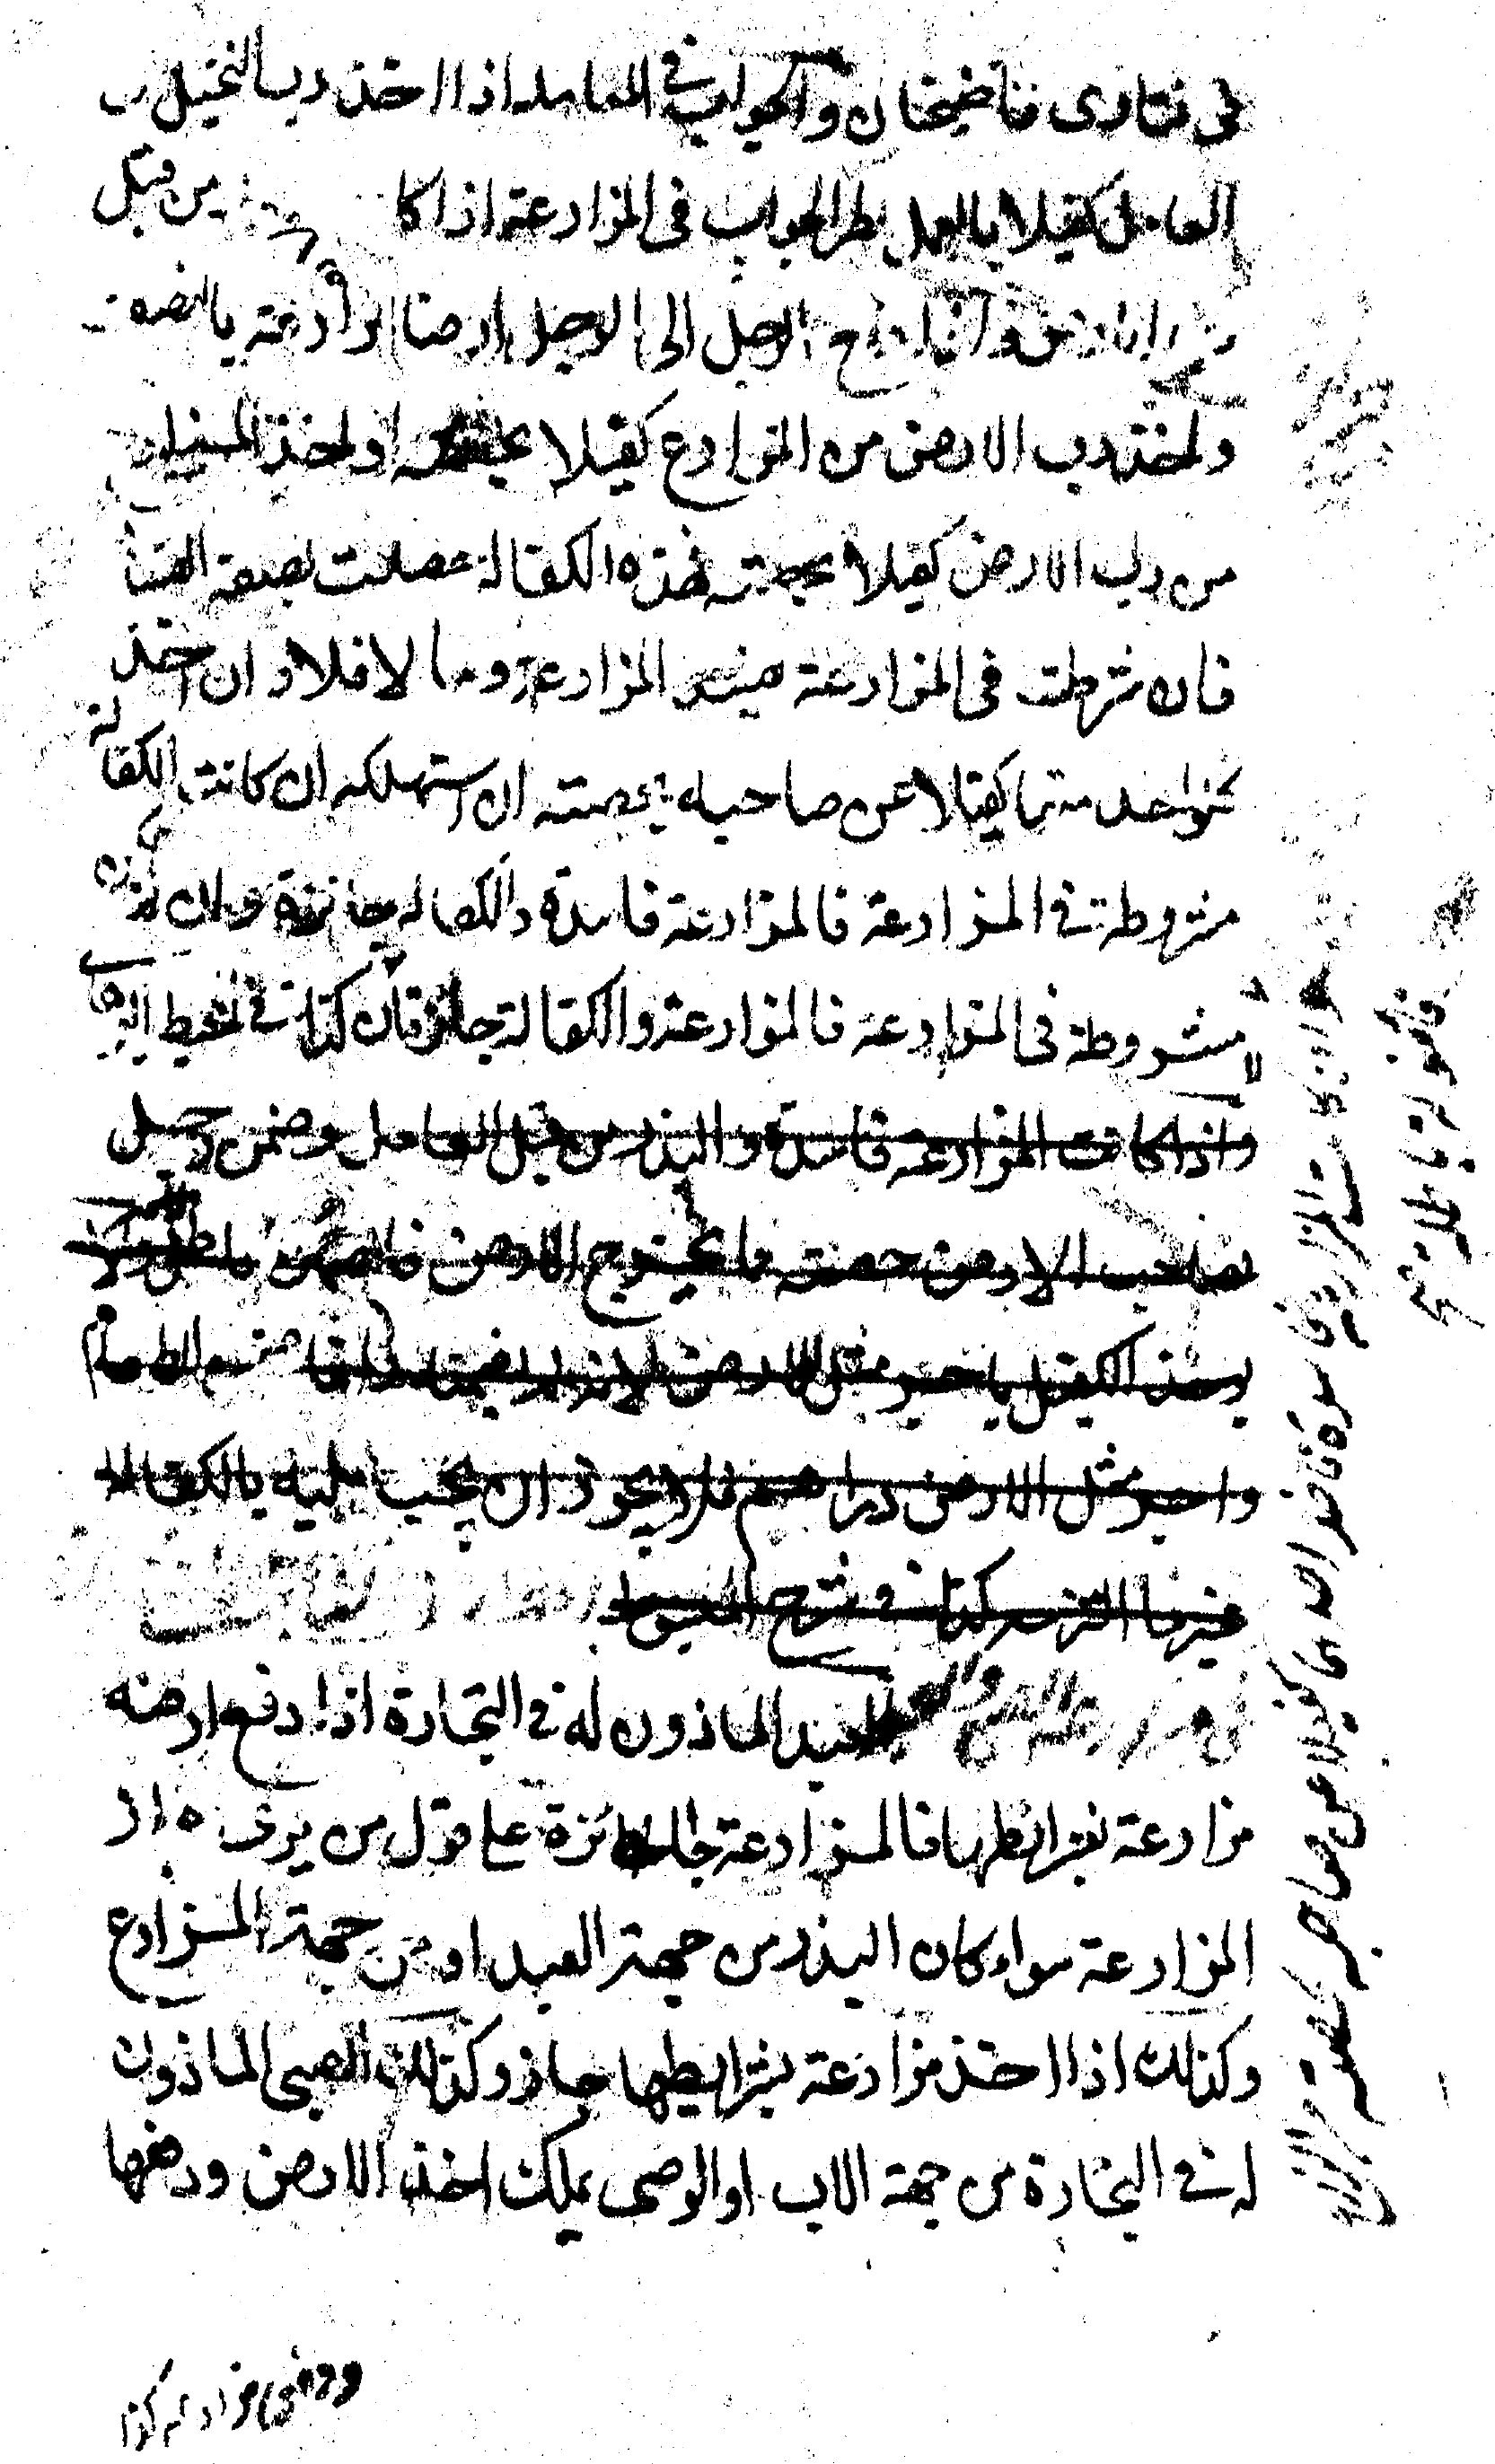 في فتاوى قاضيخان والجواب في المعاملة اذا اخذ رب النخيل من
العامل كفيلا بالعمل نظير الجواب في المزارعة اذا كا من قبل
رب الارض واذا دفع الرجل الى الرجل ارضا مزارعة بالنصف
واخذ رب الارض من المزارع كفيلا بحصته او اخذ المزارع
من رب الارض كفيلا بحصته فهذه الكفالة حصلت بصفة الفساد
فان شرطت في المزارعة تفسد المزارعة وما لا فلا وان اخذ
كل واحد منهما كفيلا عن صاحبه بحصته ان استهلكه ان كانت الكفالة
مشروطة في المزارعة فالمزارعة فاسدة والكفالة جائزة وان لم تكن
مشروطة في المزارعة فالمزارعة والكفالة جائزتان كذا في المحيط
واذا كانت المزارعة فاسدة والبذر من قبل العامل وضمن رجل
لصاحب الارض حصته مما يخرج الارض فالضمان باطل ولا
يوخذ الكفيل باجر مثل الارض لانه لم يضمنه وانما ضمن الطعام
واجر مثل الارض دراهم فلا يجوز ان يجب عليه بالكفالة
غير ما التزمه كذا في شرح المبسوط
العبد الماذون له في التجارة اذا دفع ارضه
مزارعة بشرايطها فالمزارعة جائزة على قول من يرى
المزارعة سواء كان البذر من جهة العبد او من جهة المزارع
وكذلك اذا اخذ مزارعة بشرايطها جاز وكذلك الصبي الماذون
له في التجارة من جهة الاب او الوصي يملك اخذ الارض ودفعها